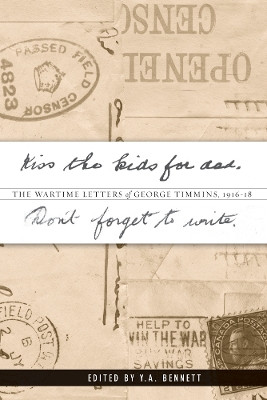 PASSED FIELD CENSOR
4823
OPENED
OPENED
Kiss the kids for dad.
THE WARTIME LETTERS of GEORGE TIMMINS, 1916–18
Don't forget to write.
FIELD POST
HELP TO
WIN THE WAR
WAR
SAVINGS
CANADA POSTAGE
EDITED BY Y.A. BENNETT